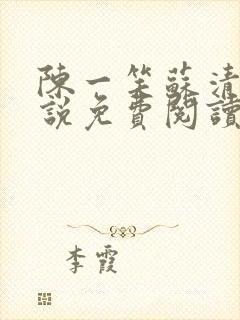 陳一笙蘇清
說免費閱讀
李霞